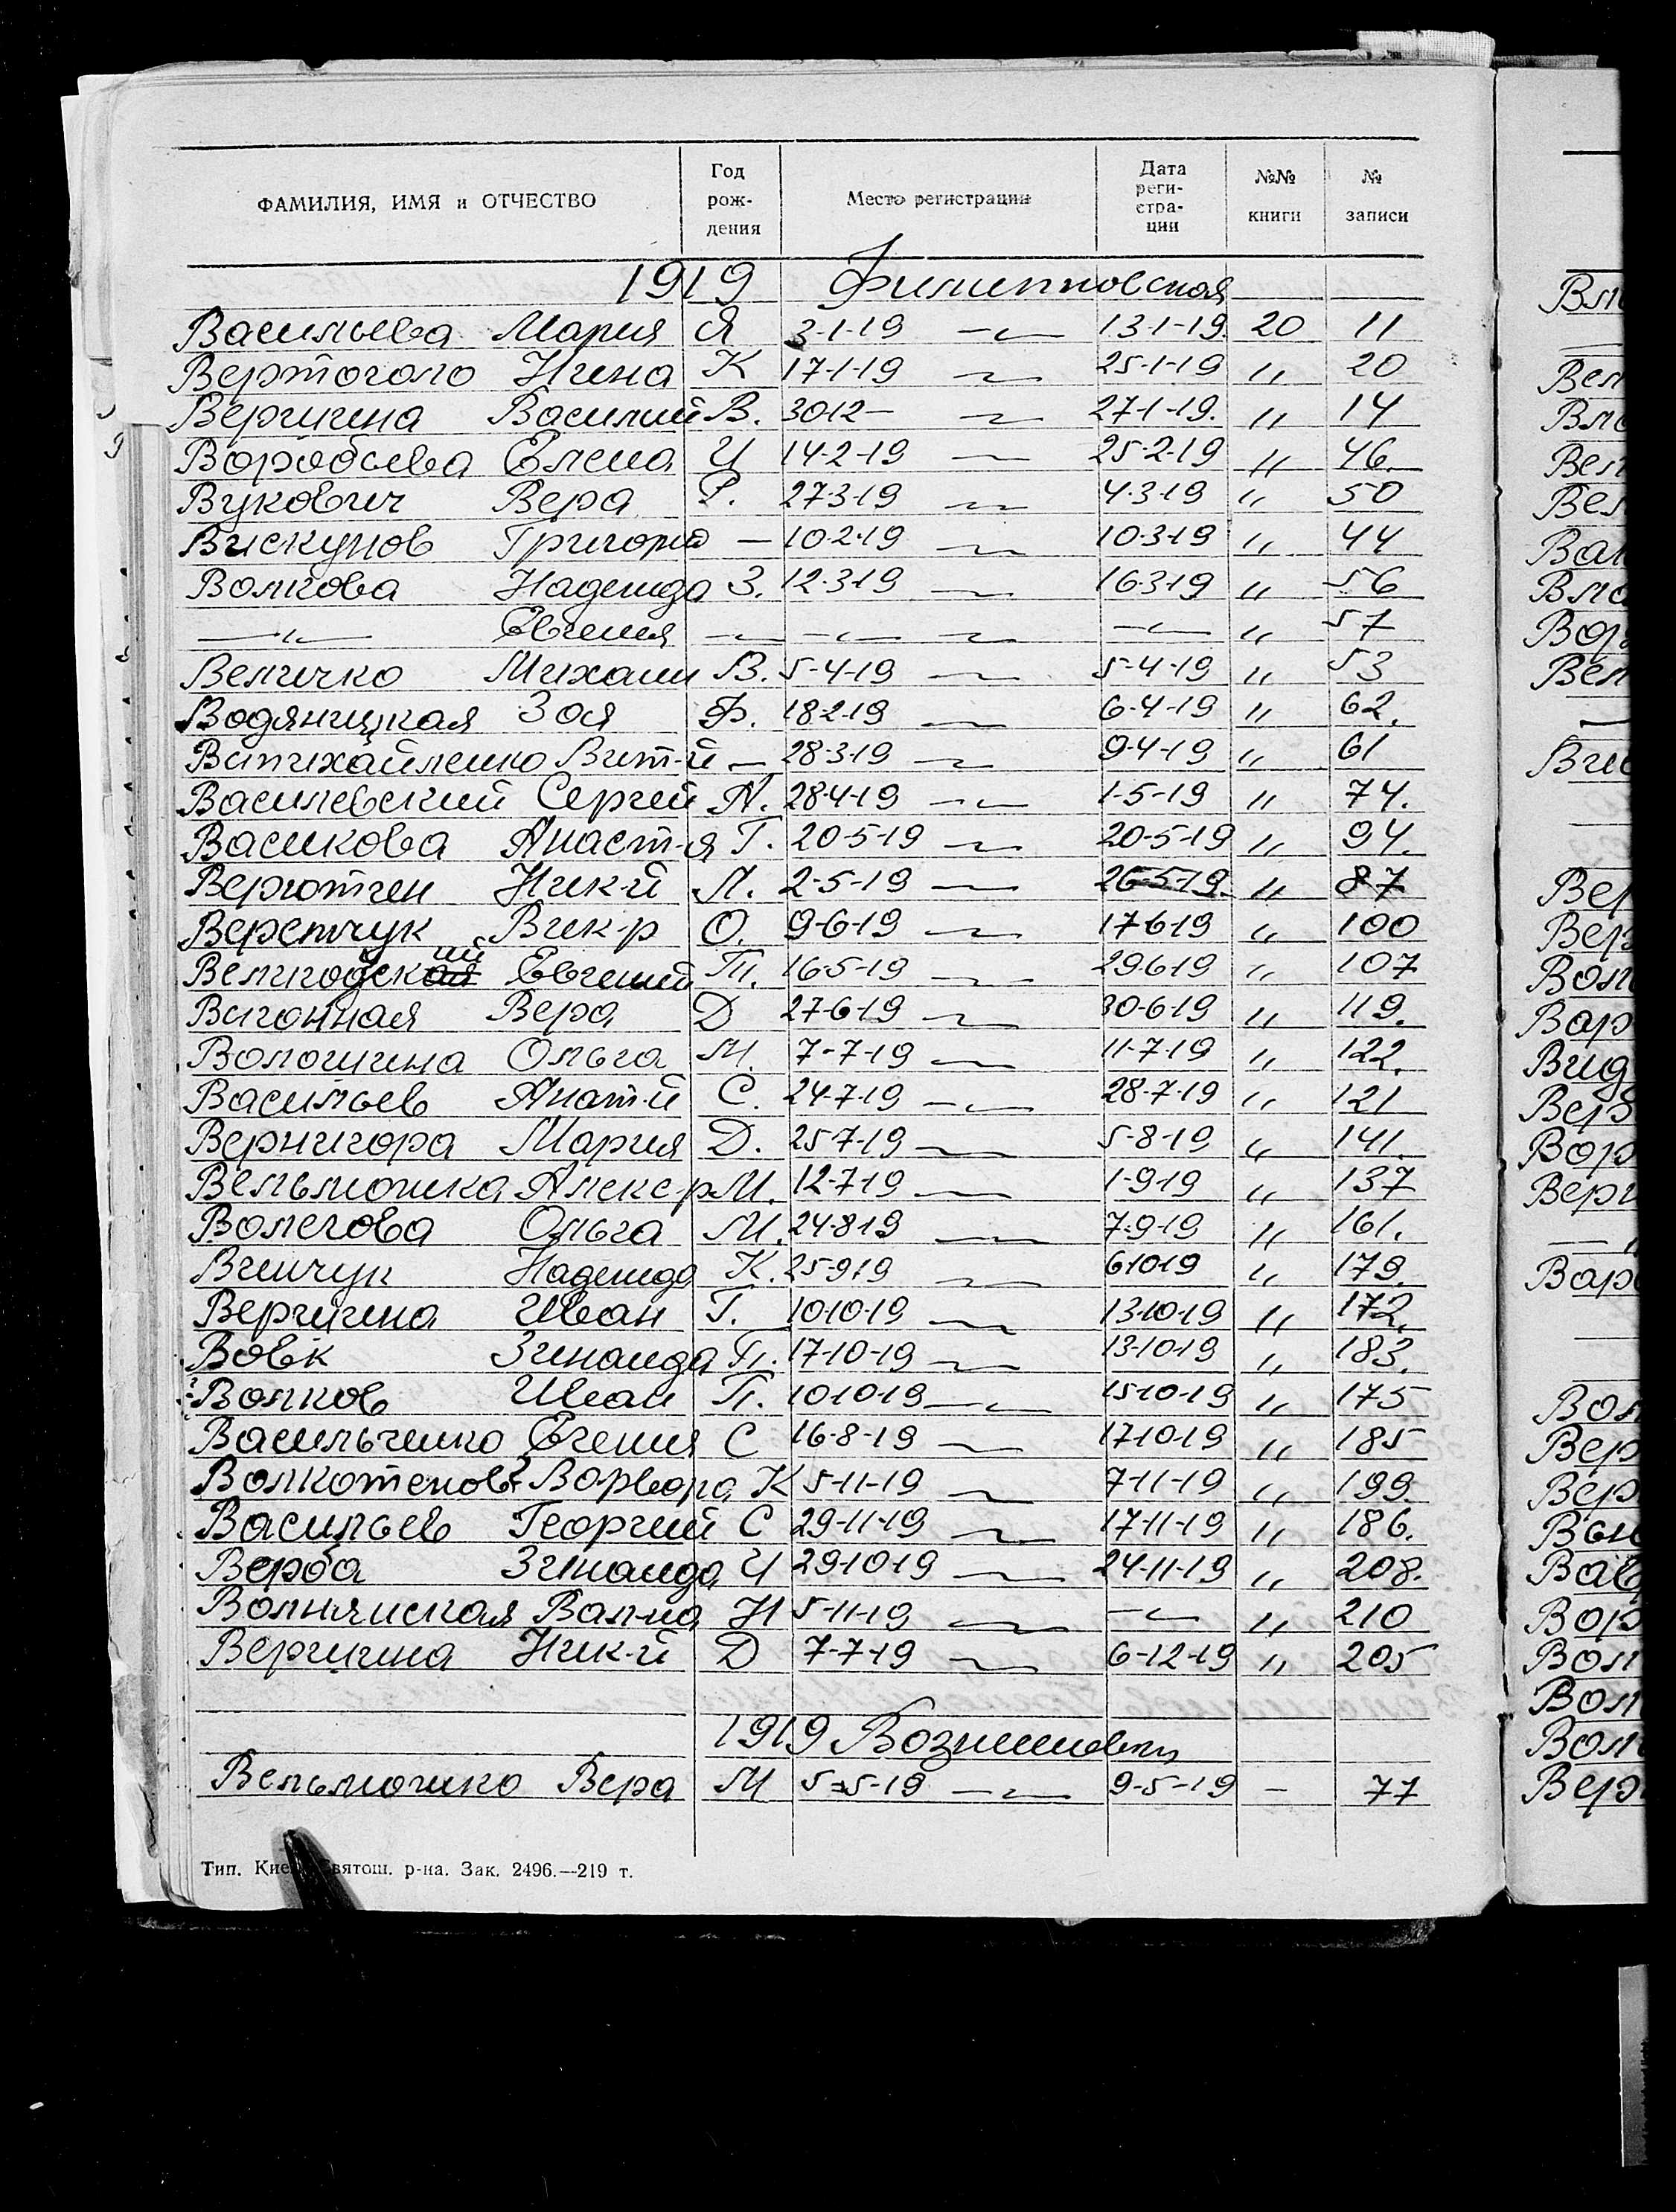 ФАМИЛИЯ, ИМЯ и ОТЧЕСТВО Год рож- дения Место регистрации Дата реги- стра- ции №№ книги № записи
1919 Филипповская
Васильева Мария Я 3-1-19 —„— 13-1-19. 20 11
Вертоголо Нина К 17-1-19 —„— 25-1-19 „ 20
Вергигина Василий В. 30 12 — —„— 27-1-19. „ 14
Воробьева Елена И 14-2-19 —„— 25-2-19 „ 46.
Вукович Вера Р. 27-3-19 —„— 4-3-19 „ 50
Вискунов Григорий — 10-2-19 —„— 10-3-19 „ 44
Волкова Надежда З. 12-3-19 —„— 16-3-19 „ 56
—„— Евгения —„— —„— —„— —„— „ 57
Величко Михаил В. 5-4-19 —„— 5-4-19 „ 53
Водяницкая Зоя Ф. 18-2-19 —„— 6-4-19 „ 62.
Вит-й — 28-3-19 —„— 9-4-19 „ 61
Василевский Сергей А. 28-4-19 —„— 1-5-19 „ 74.
Васикова Анаст-я Г. 20-5-19 —„— 20-5-19 „ 94.
Ник-й Л. 2-5-19 —„— 26-5-19. „ 87
Веретчук Вик-р О. 9-6-19 —„— 17-6-19 „ 100
Евгений П. 16-5-19 —„— 29-6-19 „ 107
Вигонная Вера Д 27-6-19 —„— 30-6-19 „ 119.
Вологигина Ольга М. 7-7-19 —„— 11-7-19 „ 122.
Васильев Анат-й С. 24-7-19 —„— 28-7-19 „ 121
Вернигора Мария Д. 25-7-19 —„— 5-8-19 „ 141.
Вельможка Алекс-р М. 12-7-19 —„— 1-9-19 „ 137
Волегова Ольга М. 24-8-19 —„— 7-9-19 „ 161.
Винчук Надежда К. 25-9-19 —„— 6-10-19 „ 179.
Вергигина Иван Г. 10-10-19 —„— 13-10-19 „ 172.
Вовк Зинаида П. 17-10-19 —„— 13-10-19 „ 183.
Волков Иван П. 10-10-19 —„— 15-10-19 „ 175
Васильченко Егения С 16-8-19 —„— 17-10-19 „ 185
Ворвора К 5-11-19 —„— 7-11-19 „ 199.
Васильев Георгий С 29-11-19 —„— 17-11-19 „ 186.
Верба Зинаида И 29-10-19 —„— 24-11-19 „ 208.
Вал-на Н 5-11-19 —„— —„— „ 210
Вергигина Ник-й Д 7-7-19 —„— 6-12-19 „ 205
1919
Вельможко Вера М 5-5-19 —„— 9-5-19 — 77
р-на. Зак. 2496.—219 т.